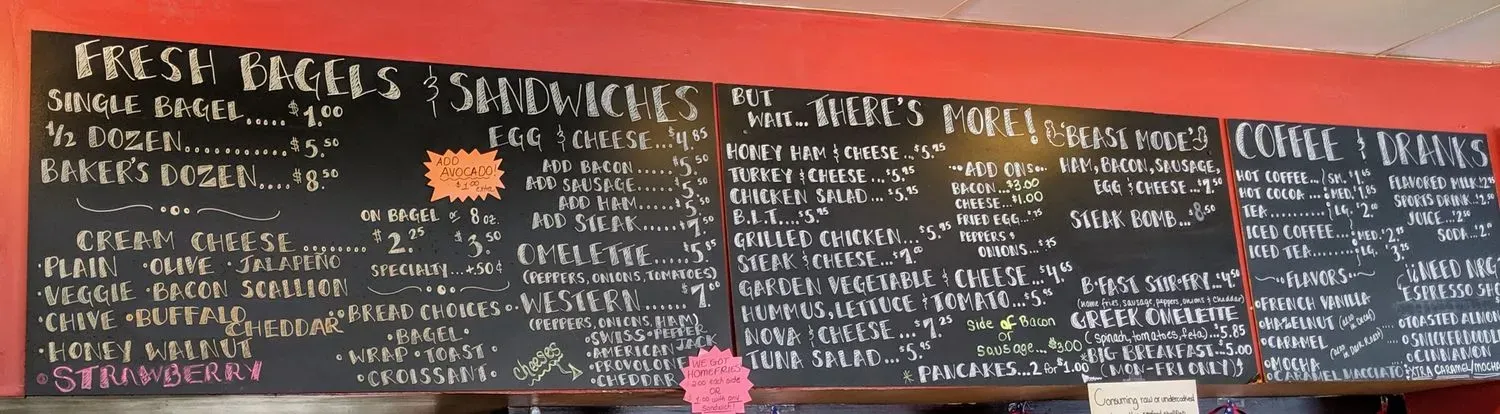 FRESH BAGELS & SANDWICHES
SINGLE BAGEL.....$1.00
1/2 DOZEN...........$5.50
BAKER'S DOZEN....$8.50
CREAM CHEESE........
ON BAGEL or 8 oz.
$2.25 $3.50
SPECIALTY...+50¢
•PLAIN •OLIVE •JALAPEÑO
•VEGGIE •BACON SCALLION
•CHIVE •BUFFALO CHEDDAR
•HONEY WALNUT
•STRAWBERRY
ADD
AVOCADO!
$1.00 extra
EGG & CHEESE...$4.85
ADD BACON.....$5.50
ADD SAUSAGE....$5.50
ADD HAM.....$5.50
ADD STEAK.....$7.50
OMELETTE.....$5.95
(PEPPERS, ONIONS, TOMATOES)
WESTERN......$7.00
(PEPPERS, ONIONS, HAM)
•BREAD CHOICES•
•BAGEL•
•WRAP •TOAST•
•CROISSANT•
Cheeses
•SWISS •PEPPER JACK
•AMERICAN
•PROVOLON
•CHEDDAR
WE GOT
HOMEFRIES
2.00 each side
OR
$1.00 with any
Sandwich!
BUT WAIT... THERE'S MORE!
HONEY HAM & CHEESE...$5.95
TURKEY & CHEESE...$5.95
CHICKEN SALAD...$5.95
B.L.T....$5.95
GRILLED CHICKEN...$5.95
STEAK & CHEESE...$7.00
GARDEN VEGETABLE & CHEESE...$4.65
HUMMUS, LETTUCE & TOMATO...$5.95
NOVA & CHEESE...$7.25
TUNA SALAD...$5.95
•••ADD ONS•••
BACON...$3.00
CHEESE...$1.00
FRIED EGG...$.75
PEPPERS &
ONIONS...$.75
Side of Bacon
or
Sausage...$3.00
*PANCAKES...2 for $1.00
'BEAST MODE'
HAM, BACON, SAUSAGE,
EGG & CHEESE...$7.50
STEAK BOMB...$8.50
B•FAST STIR•FRY...$4.50
(home fries, sausage, peppers, onions & cheddar)
GREEK OMELETTE
(spinach, tomatoes, feta)...$5.85
*BIG BREAKFAST...$5.00
(MON-FRI ONLY)
Consuming raw or undercooked
COFFEE & DRANKS
HOT COFFEE...
HOT COCOA...
TEA...
SM. $1.65
MED. $1.85
LG. $2.00
ICED COFFEE...
ICED TEA....
MED.
LG.
FLAVORED MILK
SPORTS DRINK
JUICE...
SODA...
~FLAVORS~
NEED NRG
ESPRESSO SHO
•FRENCH VANILLA
•HAZELNUT (also in decaf)
•CARAMEL
•MOCHA
•CARAMEL MACCIATO
•TOASTED ALMON
•SNICKERDOODL
•CINNAMON